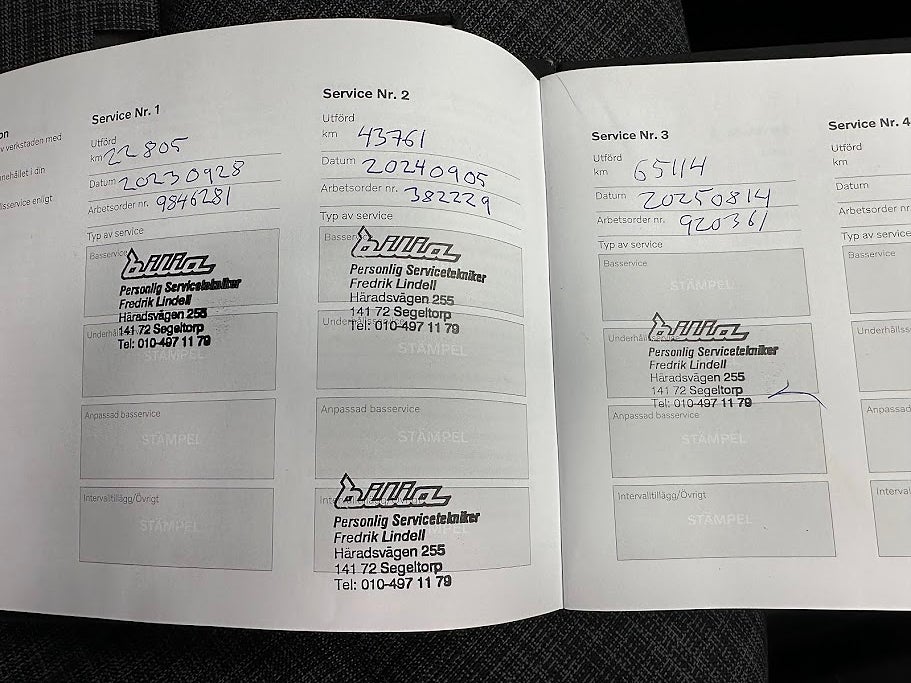 on
v verkstaden med
nehållet i din
lsservice enligt
Service Nr. 1
Utförd
km 22805
Datum 20230928
Arbetsorder nr. 9846281
Typ av service
Basservice
billia
Personlig Servicetekniker
Fredrik Lindell
Häradsvägen 255
141 72 Segeltorp
Tel: 010-497 11 79
STÄMPEL
Anpassad basservice
STÄMPEL
Intervalltillägg/Övrigt
STÄMPEL
Service Nr. 2
Utförd
km 43761
Datum 20240905
Arbetsorder nr. 382229
Typ av service
billia
Personlig Servicetekniker
Fredrik Lindell
Häradsvägen 255
141 72 Segeltorp
Tel: 010-497 11 79
STÄMPEL
Anpassad basservice
STÄMPEL
billia
Personlig Servicetekniker
Fredrik Lindell
Häradsvägen 255
141 72 Segeltorp
Tel: 010-497 11 79
Service Nr. 3
Utförd
km 65114
Datum 20250814
Arbetsorder nr. 920361
Typ av service
Basservice
STÄMPEL
Underhållsservice
billia
Personlig Servicetekniker
Fredrik Lindell
Häradsvägen 255
141 72 Segeltorp
Tel: 010-497 11 79
Anpassad basservice
STÄMPEL
Intervalltillägg/Övrigt
STÄMPEL
Service Nr. 4
Utförd
km
Datum
Arbetsorder nr.
Typ av service
Basservice
Underhållss
Anpassad
Interval